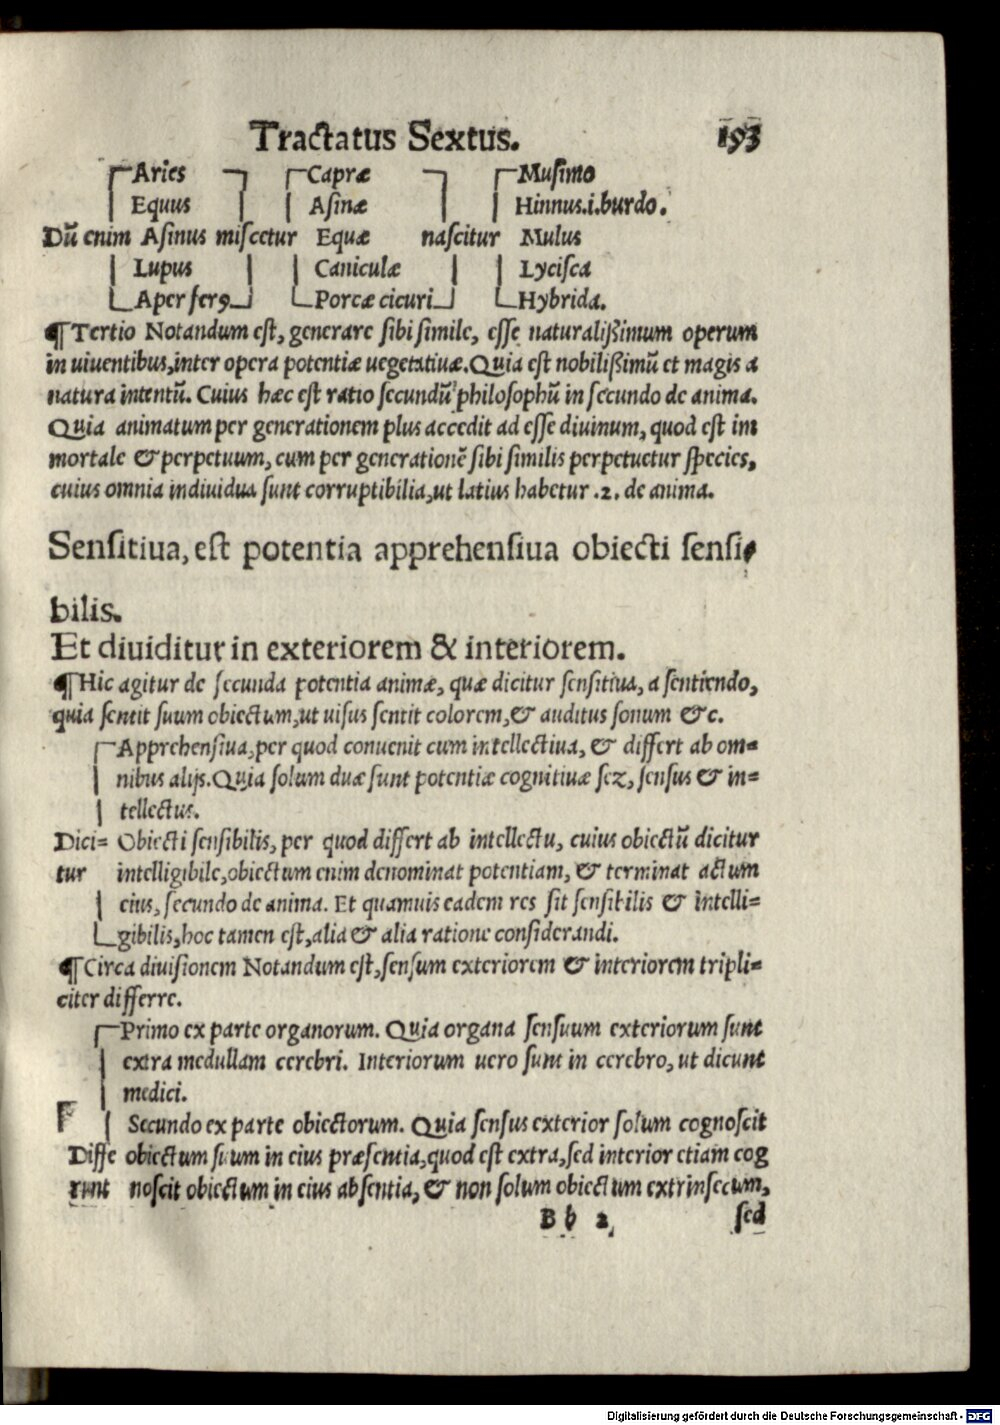 Tractatus Sextus. 193
Aries Capræ Musimo
Equus Asinæ Hinnus.i.burdo.
Dū enim Asinus miscetur Equæ nascitur Mulus
Lupus Caniculæ Lycisca
Aper ferꝯ Porcæ cicuri Hybrida.
¶Tertio Notandum est, generare sibi simile, esse naturalißimum operum
in uiuentibus,inter opera potentiæ uegetatiuæ.Quia est nobilißimū et magis a
natura intentū. Cuius hæc est ratio secundū philosophū in secundo de anima.
Quia animatum per generationem plus accedit ad esse diuinum, quod est im
mortale & perpetuum, cum per generationē sibi similis perpetuetur species,
cuius omnia indiuidua sunt corruptibilia,ut latius habetur .2. de anima.
Sensitiua, est potentia apprehensiua obiecti sensi-
bilis.
Et diuiditur in exteriorem & interiorem.
¶Hic agitur de secunda potentia animæ, quæ dicitur sensitiua, a sentiendo,
quia sentit suum obiectum,ut uisus sentit colorem,& auditus sonum &c.
Apprehensiua,per quod conuenit cum intellectiua, & differt ab om=
nibus alijs.Quia solum duæ sunt potentiæ cognitiuæ sez, sensus & in=
tellectus.
Dici= Obiecti sensibilis, per quod differt ab intellectu, cuius obiectū dicitur
tur intelligibile,obiectum enim denominat potentiam, & terminat actum
eius, secundo de anima. Et quamuis eadem res sit sensibilis & intelli=
gibilis,hoc tamen est,alia & alia ratione considerandi.
¶Circa diuisionem Notandum est,sensum exteriorem & interiorem tripli=
citer differre.
Primo ex parte organorum. Quia organa sensuum exteriorum sunt
extra medullam cerebri. Interiorum uero sunt in cerebro, ut dicunt
medici.
Secundo ex parte obiectorum. Quia sensus exterior solum cognoscit
Diffe obiectum suum in eius præsentia,quod est extra,sed interior etiam cog
runt noscit obiectum in eius absentia, & non solum obiectum extrinsecum,
B b 2 sed
Digitalisierung gefördert durch die Deutsche Forschungsgemeinschaft - DFG